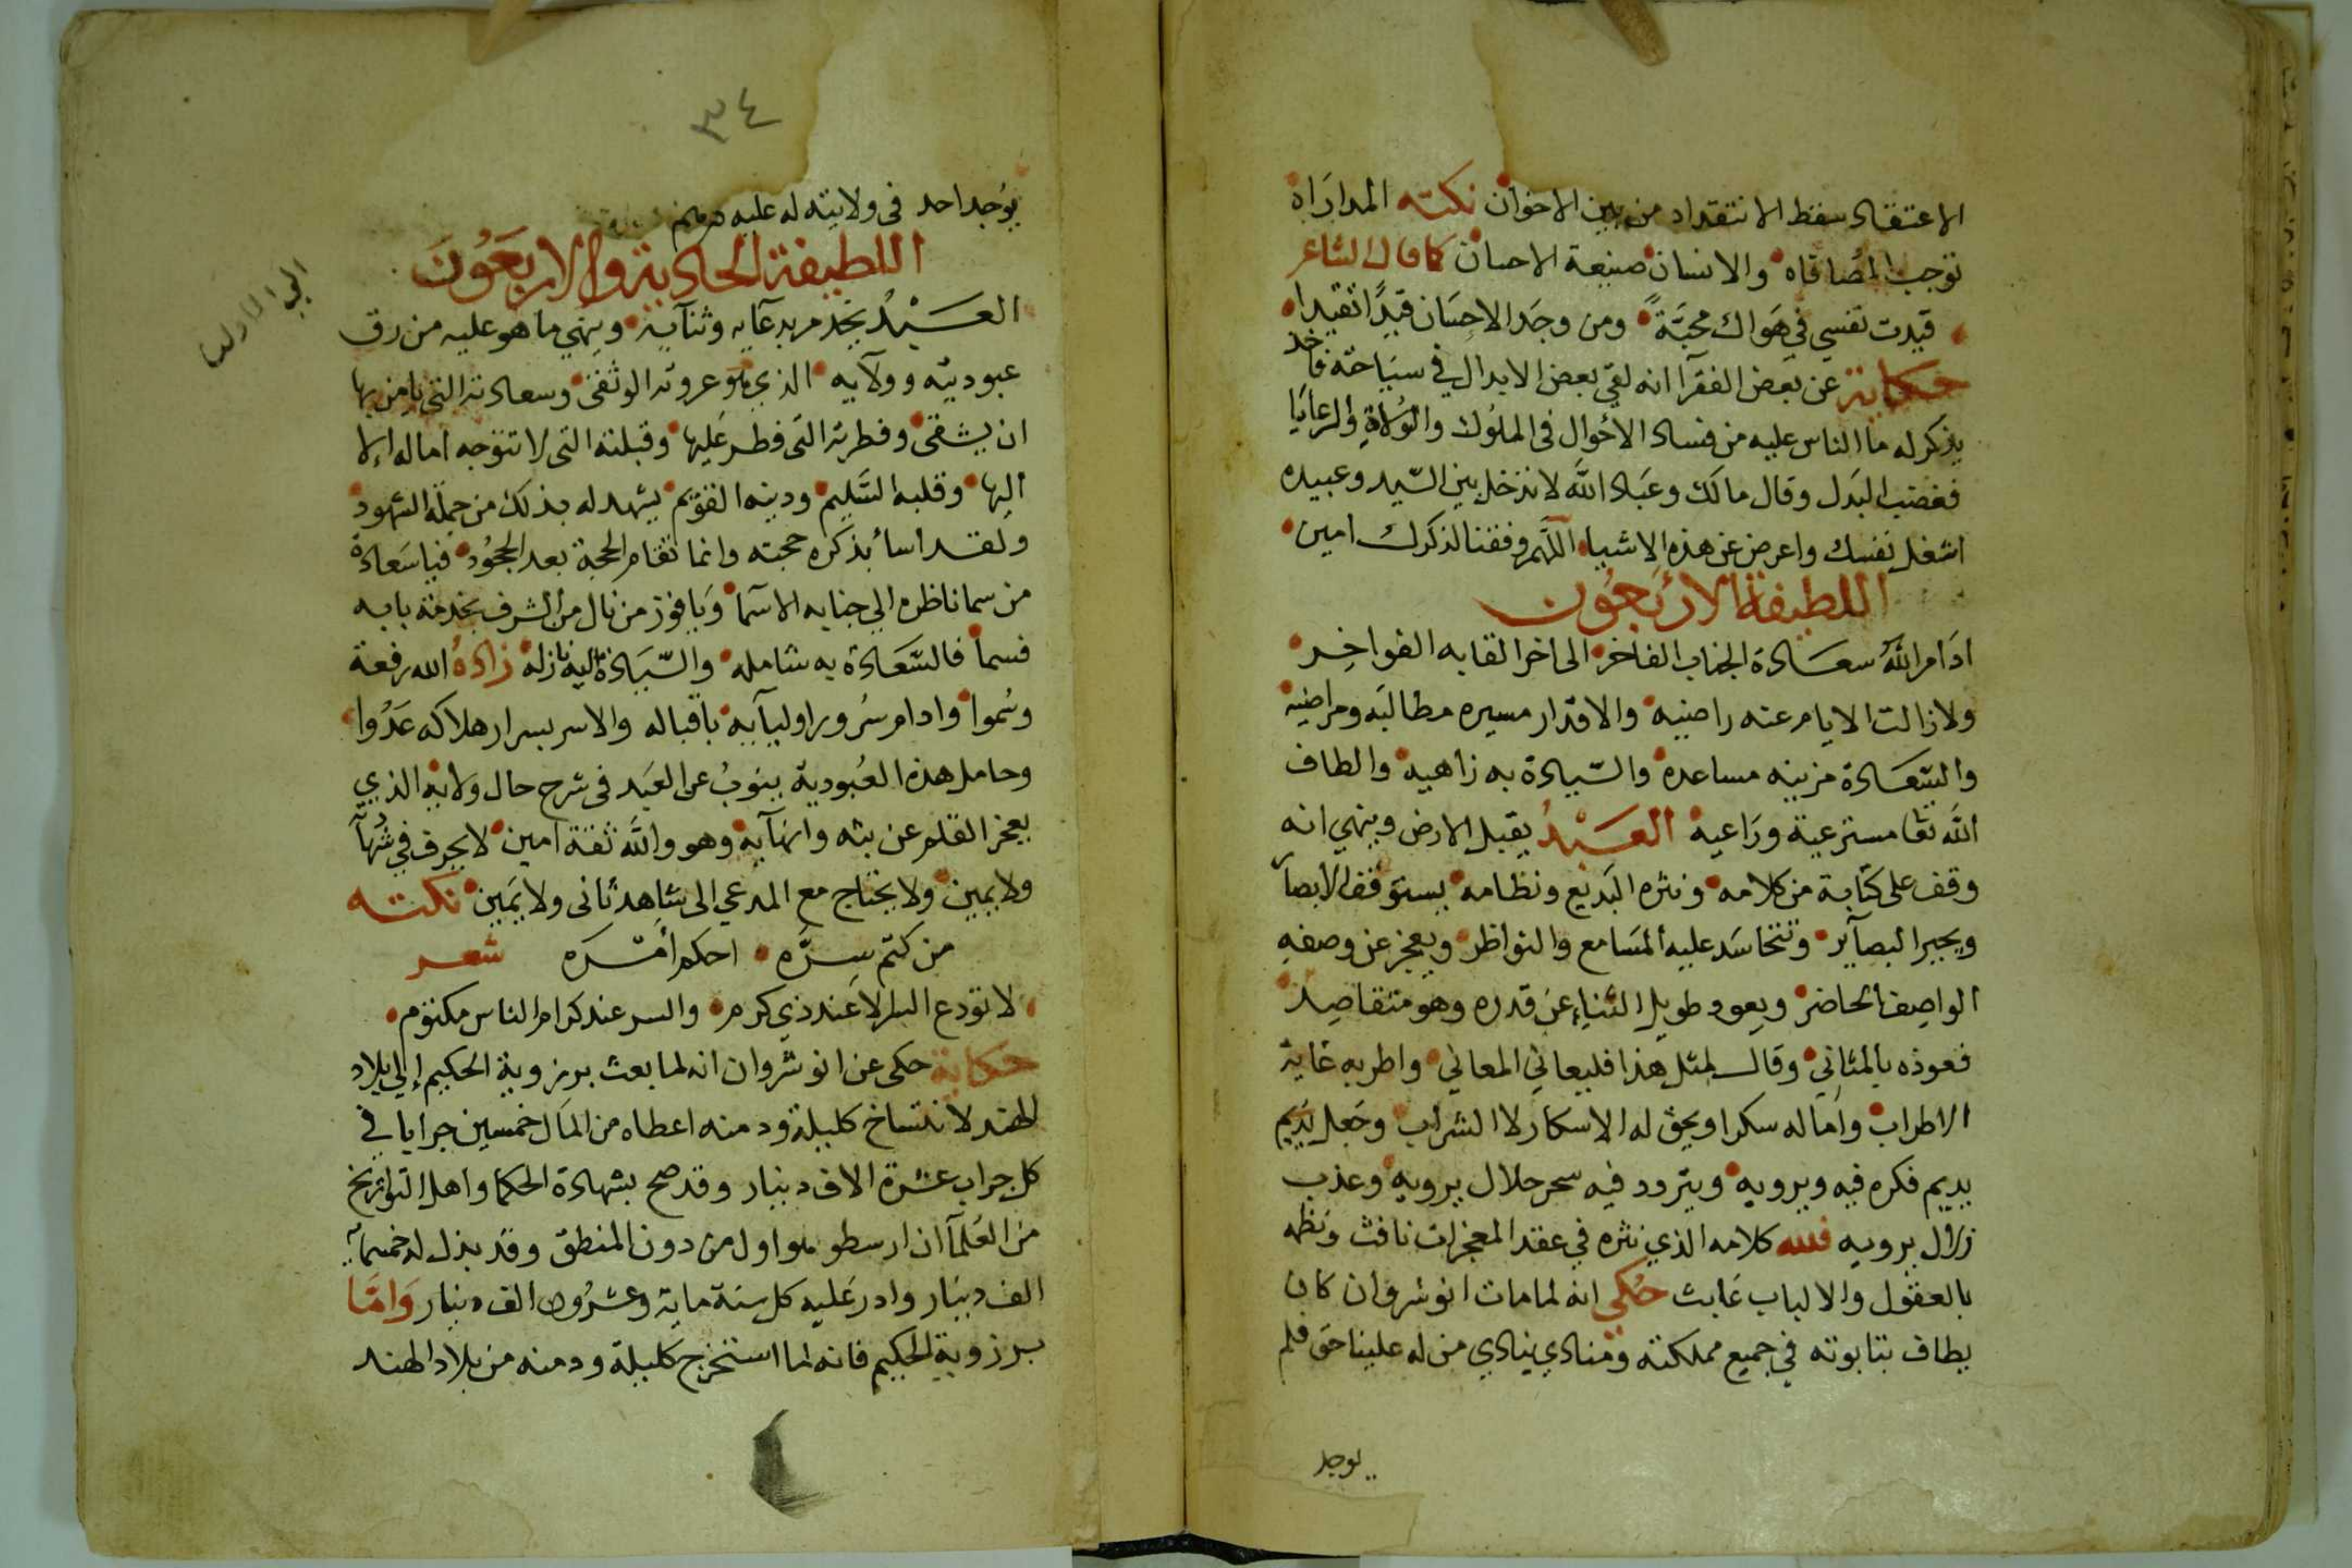 الاعتقاد سقط الانتقداد من بين الاخوان نكته المداراة
توجب المصافاه والانسان صنيعة الاحسان كما قال الشاعر
قيدت نفسي في هواك محبَّةً ومن وجَد الاحِسَان قيدًا تقيدا
حكاية عن بعض الفقرآ انه لقي بعض الابدال في سيَاحَته فاخذ
يذكر له ما الناس عليه من فساد الأحوال في الملوك والوُلاةِ والرعايَا
فغضب البَدَل وقال مالَك وعبَاد اللّه لا تدخل بين السّيد وعبيده
اشغل نفسك واعرض عن هذه الاشيا اللّهم وفقنا لذكرك امين
اللطيفة الأرْبَعُون
ادَام اللّهُ سعَادة الجناب الفاخر الى اخر القابه الفواخِر
ولا زالت الايام عنه راضيه والاقدار مسيره مطالبَه ومراضيه
والسَّعَادة مزينه مساعده والسّيادة به زاهيه والطاف
اللّه تعَا مسترعية ورَاعيه العَبْدُ يقبل الارض وينهي انه
وقف على كتابة من كلامه ونثره البَديع ونظامه يستوقف الأبصَار
ويحير البصآير وتتحاسَد عليه المسَامع والنواظر ويعجز عن وصفهِ
الواصِف الحاضر ويعود طويل الثناءِ عن قدره وهو متقاصِر
فعوذه بالمثاني وقال لمثل هذا فليعاني المعاني واطربه غاية
الاطراب وامَاله سكرا ويحق له الاسكار لا الشراب وجَعل يديم
يديم فكره فيه ويرويه ويتردد فيه سحر حلال يرويه وعذب
زلال يرويه فلله كلامه الذي نثره في عقد المعجزات نافث ونظمه
بالعقول والالباب عَابث حُكي انه لما مات انوشروان كان
يطاف بتابوته في جميع مملكته ومنادي ينادي من له علينا حق فلم
يوجد
٣٤
يوجد احد في ولايته له عليه درهم
اللطيفة الحادية والاربَعُونَ
العَبْدُ يخدم بدعآيه وثنآيه وينهي ما هو عليه من رق
عبوديته وولآيه الذي هو عروته الوثقى وسعادته التي يامن بها
ان يشقى وفطرته التى فطر عَليها وقبلته التى لا تتوجه اماله إلا
اليها وقلبه السَّليم ودينه القوّيم يشهد له بذلك من جملة الشهود
ولقد اسأ بذكره حجته وانما تقام الحجة بعد الججُود فيا سَعادة
من سما ناظره الي جنابه الاسما ويَا فوز من نال من الشرف بخدمة بابه
قسما فالسَّعَادة به شامله والسّيَادة اليه نازله زادهُ الله رفعة
وسُموا وادام سُرور اوليآيه باقباله والاسر بسرار هلاكه عَدُوا
وحامل هذه العُبودية ينوبُ عن العَبد في شرح حال ولآيه الذي
يعجز القلم عن بثه وانهآيه وهو واللّه ثقة امين لا يجرف في شهآ
ولا يمين ولا يحتاج مع المدعي الى شاهد ثانى ولا يَمين نكته
من كتم سِرَّه احكم أمْرَه شعر
لا تودع السر الا عند ذي كرم والسر عند كرام الناس مكتوم
حكاية حكى عن انو شروان انه لما بعث برزوية الحكيم إلي بلاد
الهند لانتساخ كليلة ودمنه اعطاه من المَال خمسين جرابا في
كل جراب عشرة الاف دينار وقد صح بشهادة الحكما واهل التواريخ
من العُلمآ ان ارسطو هو اول من دون المنطق وقد بذل له خمسمآية
الف دينَار وادر عَليه كل سنة ماية وعشرُون الف دينار وَامَّا
برزوية الحكيم فانه لما استخرج كليلة ودمنه من بلاد الهند